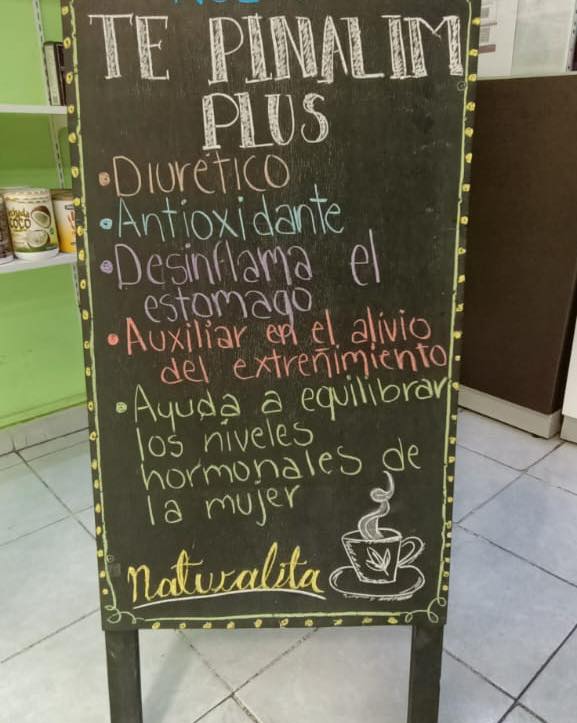 TE PINALIM
PLUS
•Diurético
•Antioxidante
•Desinflama el
estomago
•Auxiliar en el alivio
del extreñimiento
•Ayuda a equilibrar
los niveles
hormonales de
la mujer
naturalita